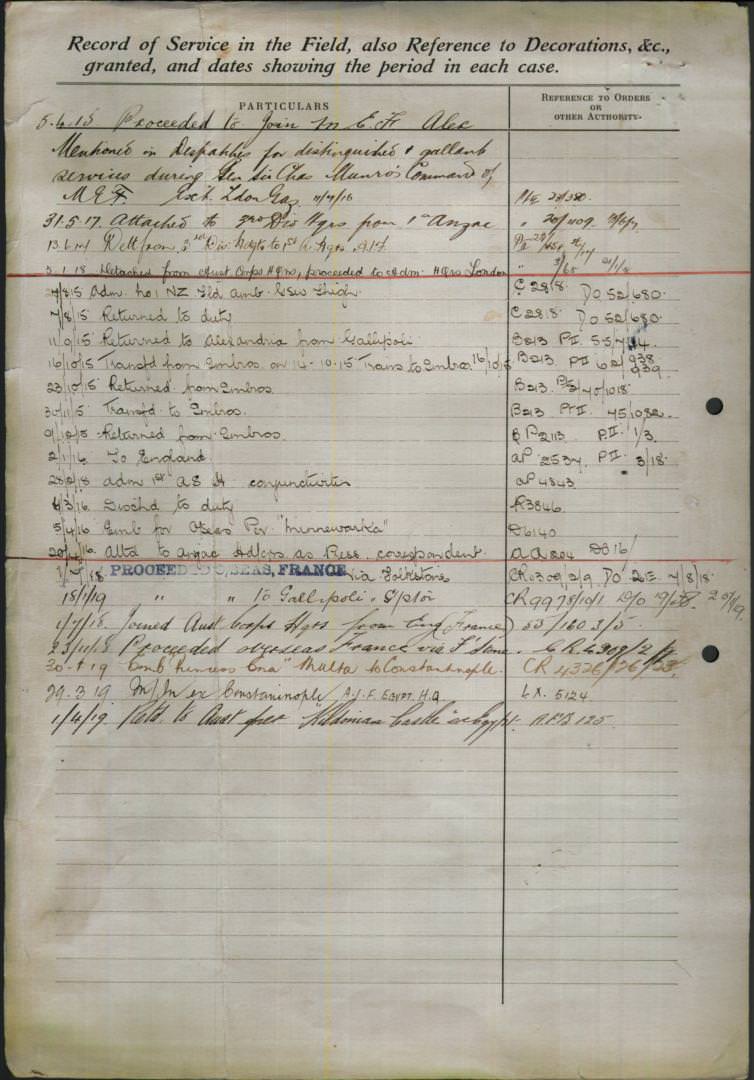 Record of Service in the Field, also Reference to Decorations, &c.,
granted, and dates showing the period in each case.
PARTICULARS
REFERENCE TO ORDERS
OR
OTHER AUTHORITY.
5.4.15 Proceeded to Join M E F Alex
Mentioned in Despatches for distinguished & gallant
services during Gen Sir Chas Munro's Command of
M E F Ldon Gaz 11/7/16
31.5.17. Attached to 2nd Div Hqrs from 1st Anzac
13.6.17 Det from 2nd Div Hdqts to 1st A. Hqrs A.I.F.
5.1.18 Detached from Aust Corps HQrs, proceeded to Adm. HQrs London
7/8/15 Adm No 1 NZ Fld Amb. GSW Thigh C 2818 DO 52/680.
7/8/15 Returned to duty C 2818 DO 52/680.
11/9/15 Returned to Alexandria from Gallipoli. B213 Pt II
16/10/15 Transfd from Embros on 14-10-15 Trans to Embros 16/10/15 B213 Pt II 62/938
939
23/10/15 Returned from Embros. B213
30/11/15 Transfd to Embros. B213 Pt II 45/1082.
9/12/15 Returned from Embros. B213 P.II 1/3.
2/1/16 To England aP 2537 P.II 3/18.
28/2/18 adm 1st AS H conjunctivitis aP 4843
4/3/16 Disch'd to duty R3846
5/4/16 Emb for O'seas Per "Minnewaska" D6140
20/4/16 Attd to Anzac Hdqrs as Press correspondent. AA 804 DO 16/
PROCEED O'SEAS, FRANCE via Folkstone CR0309/2/9 DO 26E 7/8/18.
18/1/19 " " To Gallipoli
1/7/18 Joined Aust Corps Hqrs from Eng (France) 53/160 3/5
23/11/18 Proceeded overseas France via F'stone. C.R.4309/2
30.1.19 Emb Princess Ena" Malta to Constantinople. CR 4326/26/23.
29.3.19 M/In ex Constaninople A.I.F. Egypt. H.Q. LX. 5124.
1/4/19 Retd. to Aust per "Kildonian Castle" ex Egypt. AFB 125.